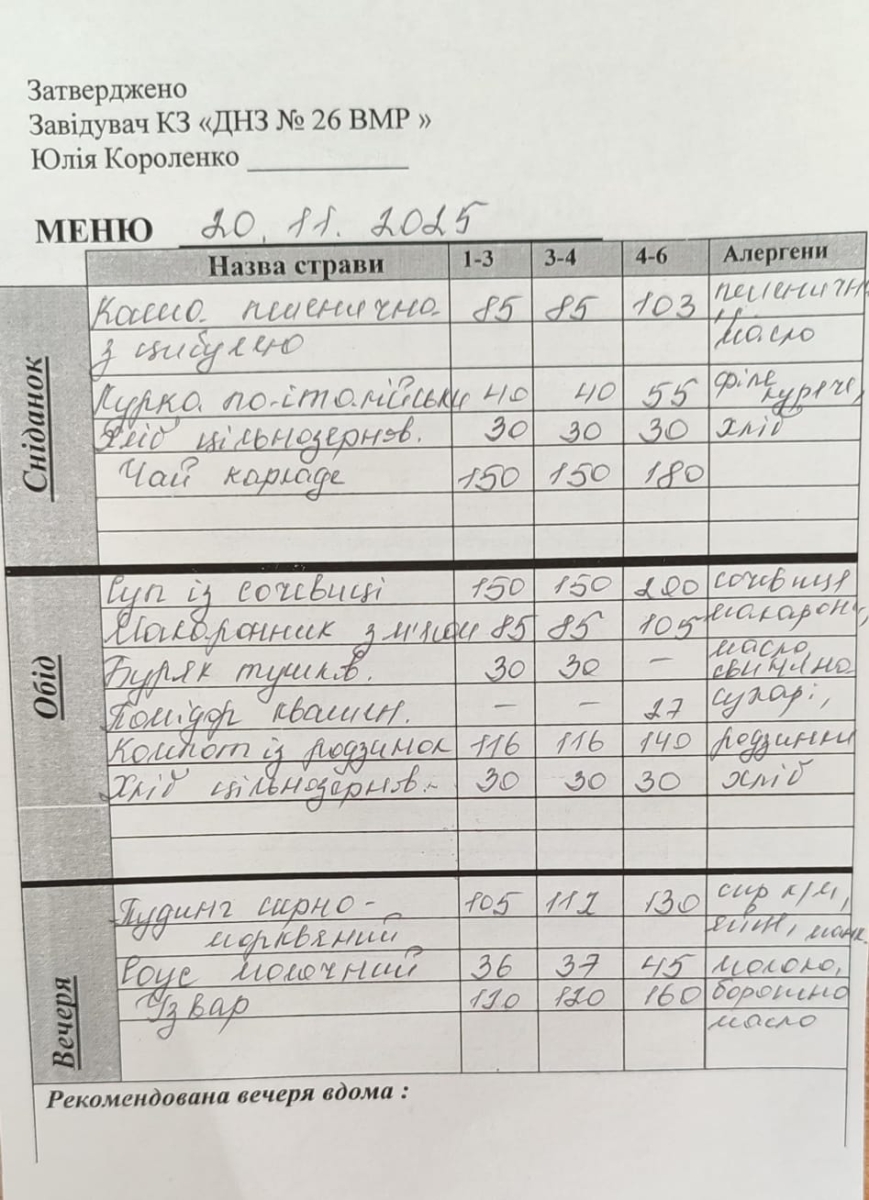 Затверджено
Завідувач КЗ «ДНЗ № 26 ВМР »
Юлія Короленко
МЕНЮ 20.11.2025
Назва страви 1-3 3-4 4-6 Алергени
Сніданок
Каша пшенична 85 85 103 пшенична
з цибулею масло
Курка по-італійськи 40 40 55 філе куряче,
Хліб цільнозернов. 30 30 30 хліб
Чай каркаде 150 150 180
Обід
Суп із сочевиці 150 150 200 сочевиця
Макаронник з м'ясом 85 85 105 макарони,
Буряк тушков. 30 30 — масло, свинина
Помідор квашен. — — 27 сухарі,
Компот із родзинок 116 116 140 родзинки
Хліб цільнозернов. 30 30 30 хліб
Вечеря
Пудинг сирно- 105 112 130 сир к/м,
морквяний яйця, манк.
Соус молочний 36 37 45 молоко,
Узвар 120 120 160 борошно
масло
Рекомендована вечеря вдома :